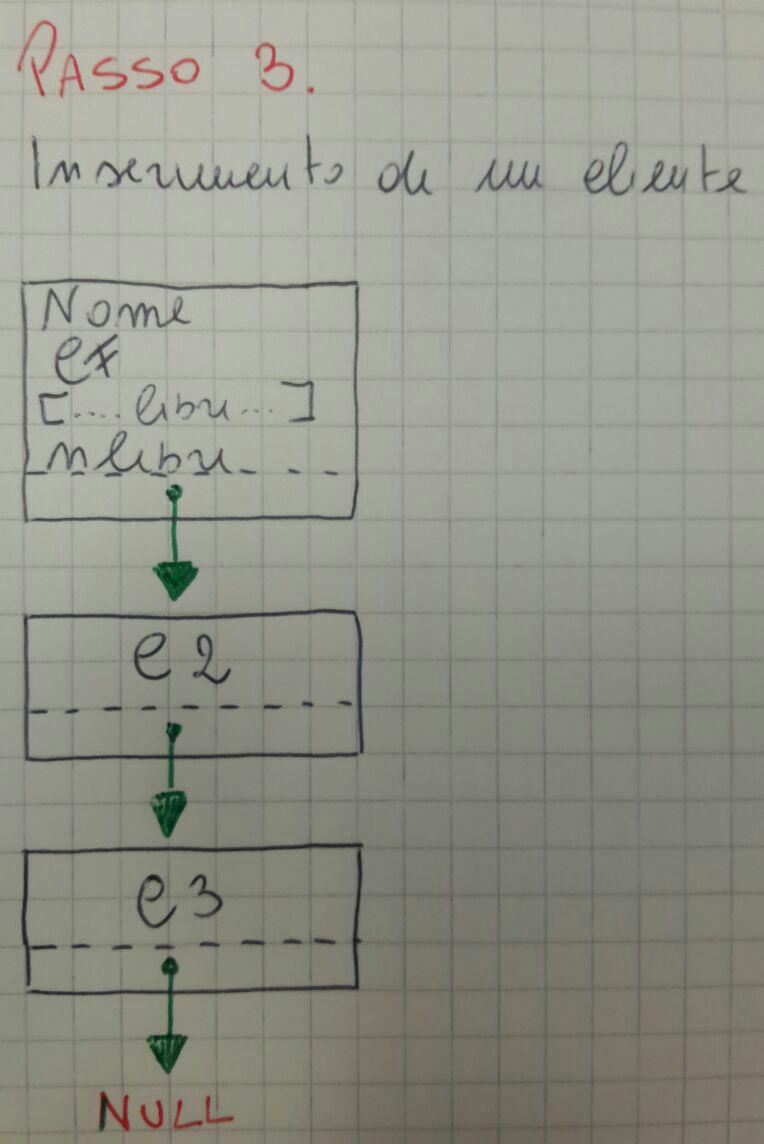 PASSO 3.
Inserimento di un cliente
Nome
CF
[....libri...]
nlibri
C2
C3
NULL